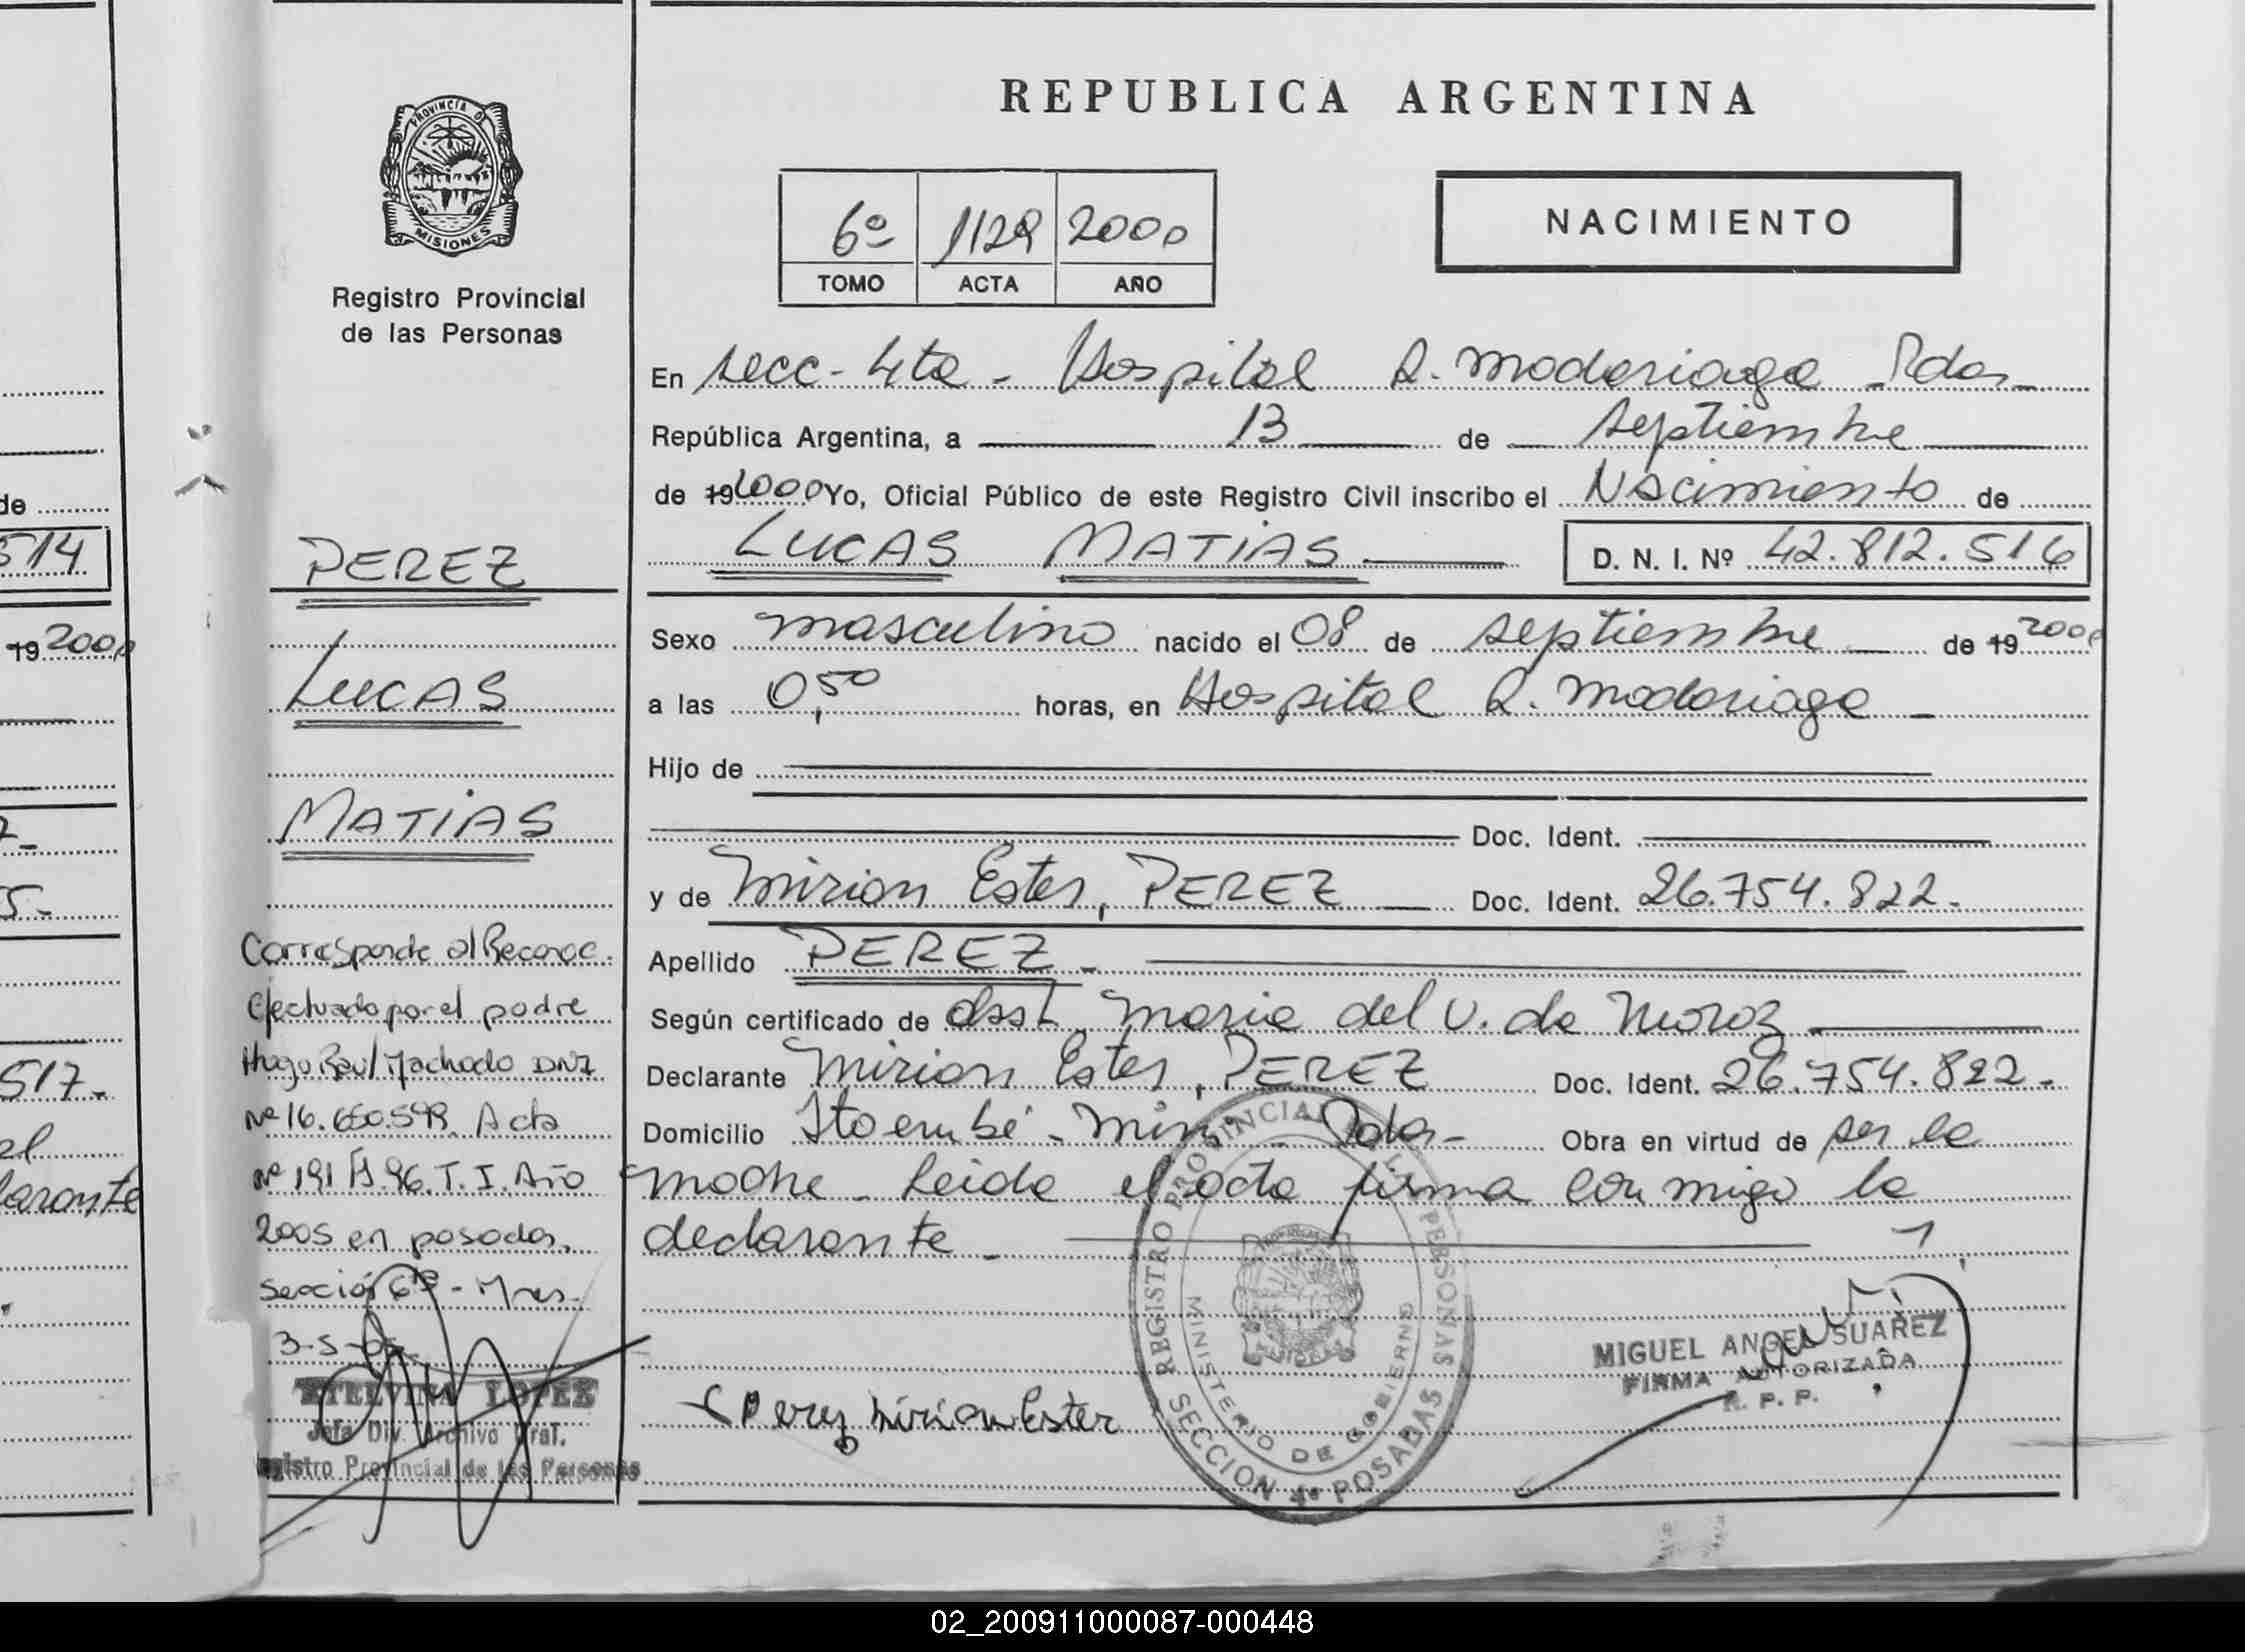 REPUBLICA ARGENTINA
PROVINCIA DE
MISIONES
Registro Provincial
de las Personas
6º 1129 2000
TOMO ACTA AÑO
NACIMIENTO
En secc- 4ta - Hospital R. Madariaga Pdas
República Argentina, a 13 de septiembre
de 192000 Yo, Oficial Público de este Registro Civil inscribo el Nacimiento de
LUCAS MATIAS D. N. I. Nº 42.812.516
Sexo masculino nacido el 08 de septiembre de 19 2000
a las 0,50 horas, en Hospital R. Madariaga -
Hijo de
Doc. Ident.
y de Mirian Ester, PEREZ Doc. Ident. 26.754.822.
Apellido PEREZ -
Según certificado de obst. Maria del V. de
Declarante Mirian Ester, PEREZ Doc. Ident. 26.754.822.
Domicilio Itaembé - Mini - Pdas - Obra en virtud de ser la
madre - Leida el acta firma conmigo la
declarante -
Perez Mirian Ester
REGISTRO PROVINCIAL DE LAS PERSONAS
MINISTERIO DE GOBIERNO
SECCION 4º POSADAS
MIGUEL ANGEL SUAREZ
FIRMA AUTORIZADA
R. P. P.
PEREZ
LUCAS
MATIAS
Corresponde al Reconoc.
Efectuado por el padre
Hugo Raul Machado DNI
Nº 16.650.599. Acta
Nº 191 Fº 96. T. I. Año
2005 en posadas.
Sección 6ta - Mnes.
3-5-05
ETELVINA LOPEZ
Jefa Div. Archivo Gral.
Registro Provincial de las Personas
de
514
19 2000
5-
517-
al
larante
02_200911000087-000448